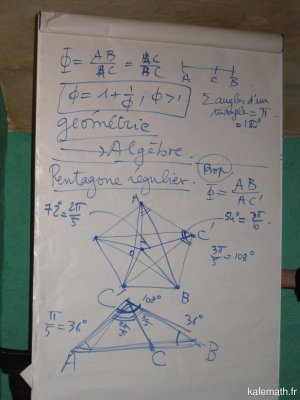 Φ = AB/AC = AC/BC
A C B
Φ = 1 + 1/Φ ; Φ > 1.
Σ angles d'un triangle = π = 180°
géométrie
→ Algèbre.
Pentagone régulier.
Prop
Φ = AB/AC'
72° = 2π/5
A
54° = 3π/10
C'
3π/5 = 108°
O
C
B
108°
π/5 = 36°
36°
A
C
B
kafemath.fr